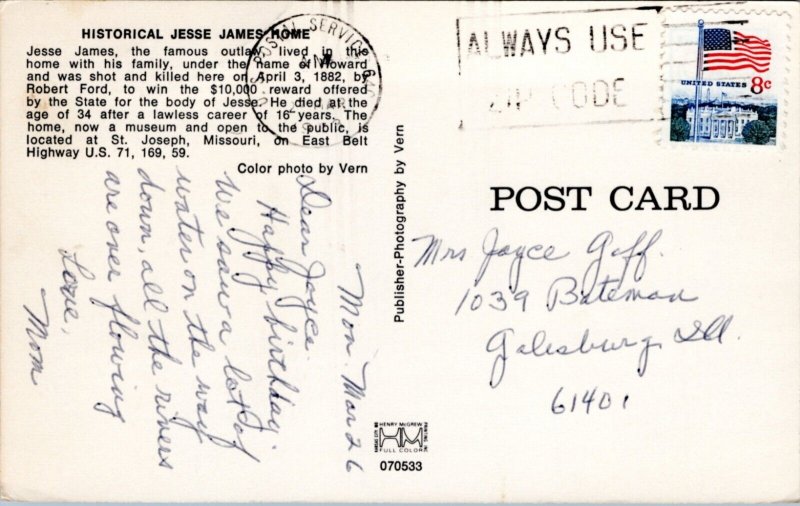 HISTORICAL JESSE JAMES HOME
Jesse James, the famous outlaw, lived in this
home with his family, under the name of Howard
and was shot and killed here on April 3, 1882, by
Robert Ford, to win the $10,000 reward offered
by the State for the body of Jesse. He died at the
age of 34 after a lawless career of 16 years. The
home, now a museum and open to the public, is
located at St. Joseph, Missouri, on East Belt
Highway U.S. 71, 169, 59.
Color photo by Vern
Mon. Mar 26
Dear Joyce.
Happy birthday
We saw a lot of
water on the way
down, all the rivers
are over flowing
Love,
Mom
Publisher-Photography by Vern
HENRY McGREW
PRINTING, INC.
KANSAS CITY, MO.
HM
FULL COLOR
070533
POSTAL SERVICE
ALWAYS USE
ZIP CODE
UNITED STATES 8c
POST CARD
Mrs Joyce Goff.
1039 Bateman
Galesburg, Ill.
61401